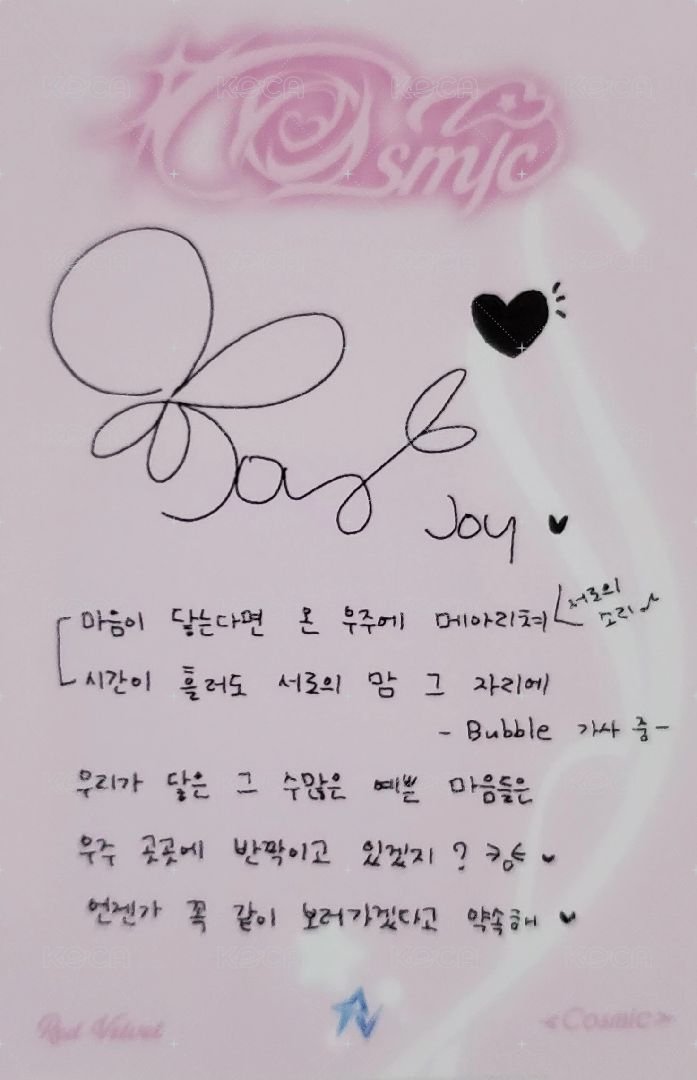 Cosmic
Joy
마음이 닿는다면 온 우주에 메아리쳐 서로의 소리
시간이 흘러도 서로의 맘 그 자리에
- Bubble 가사 중 -
우리가 닿은 그 수많은 예쁜 마음들은
우주 곳곳에 반짝이고 있겠지?
언젠가 꼭 같이 보러가겠다고 약속해
Red Velvet
<Cosmic>